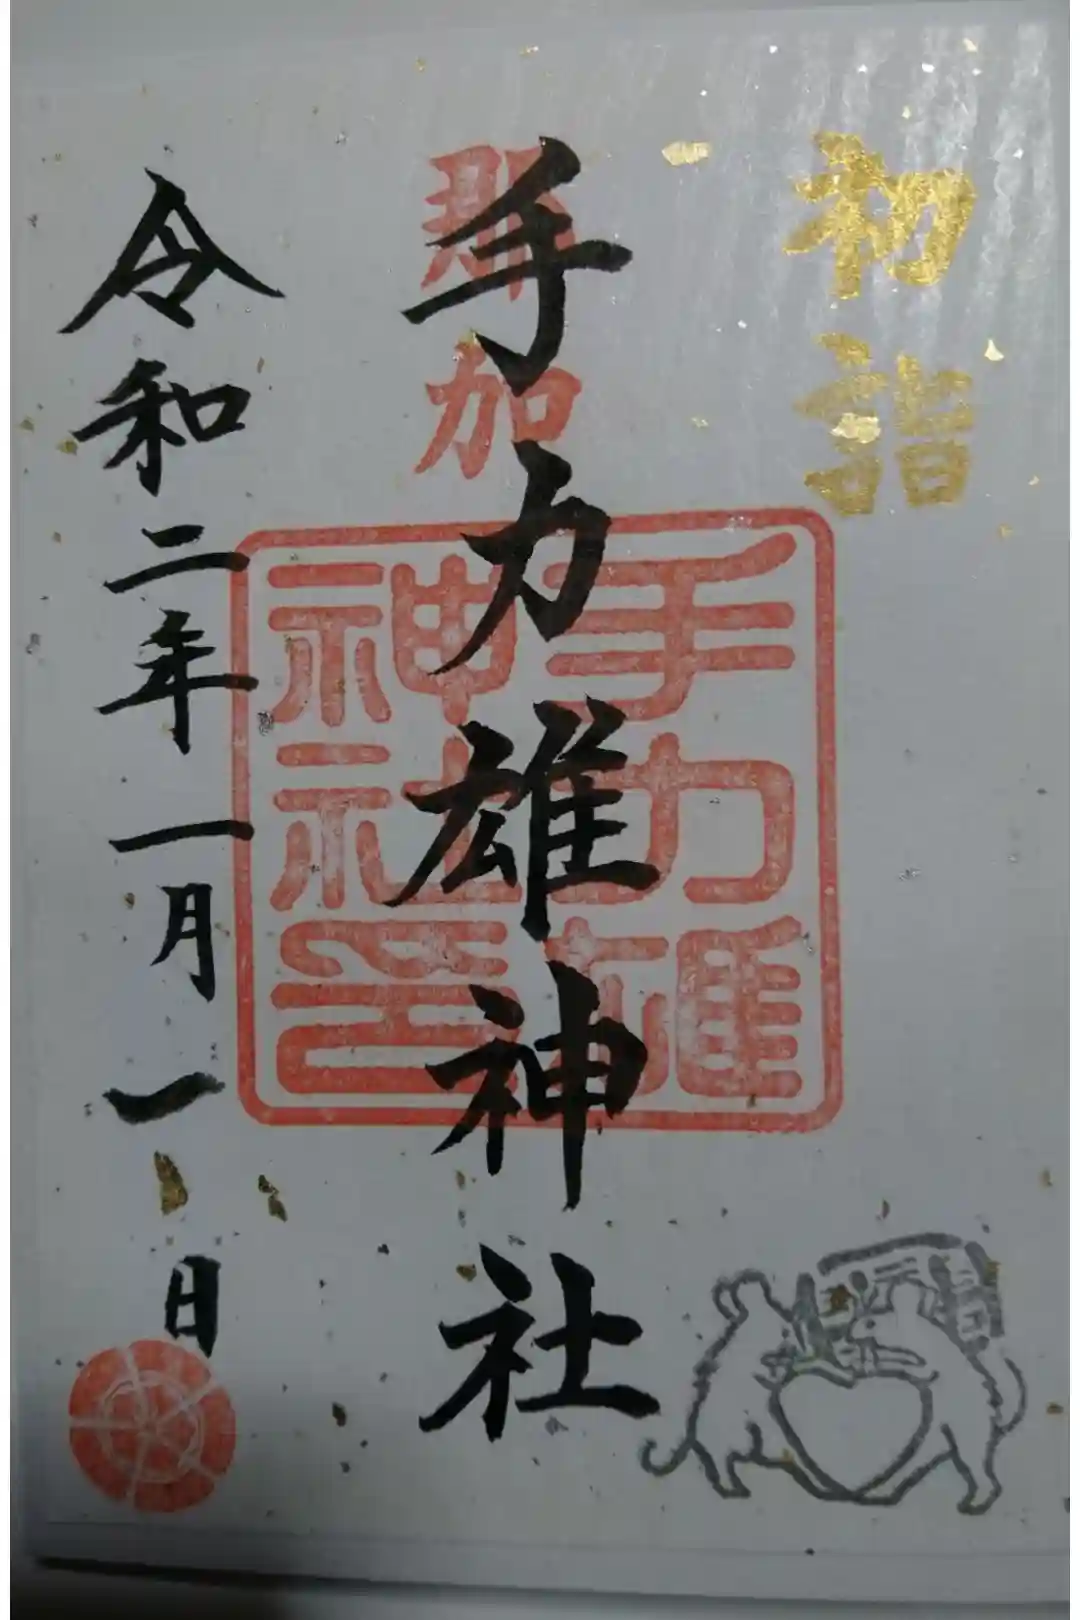 初詣
那加
手力雄神社
手力雄神社印
令和二年一月一日